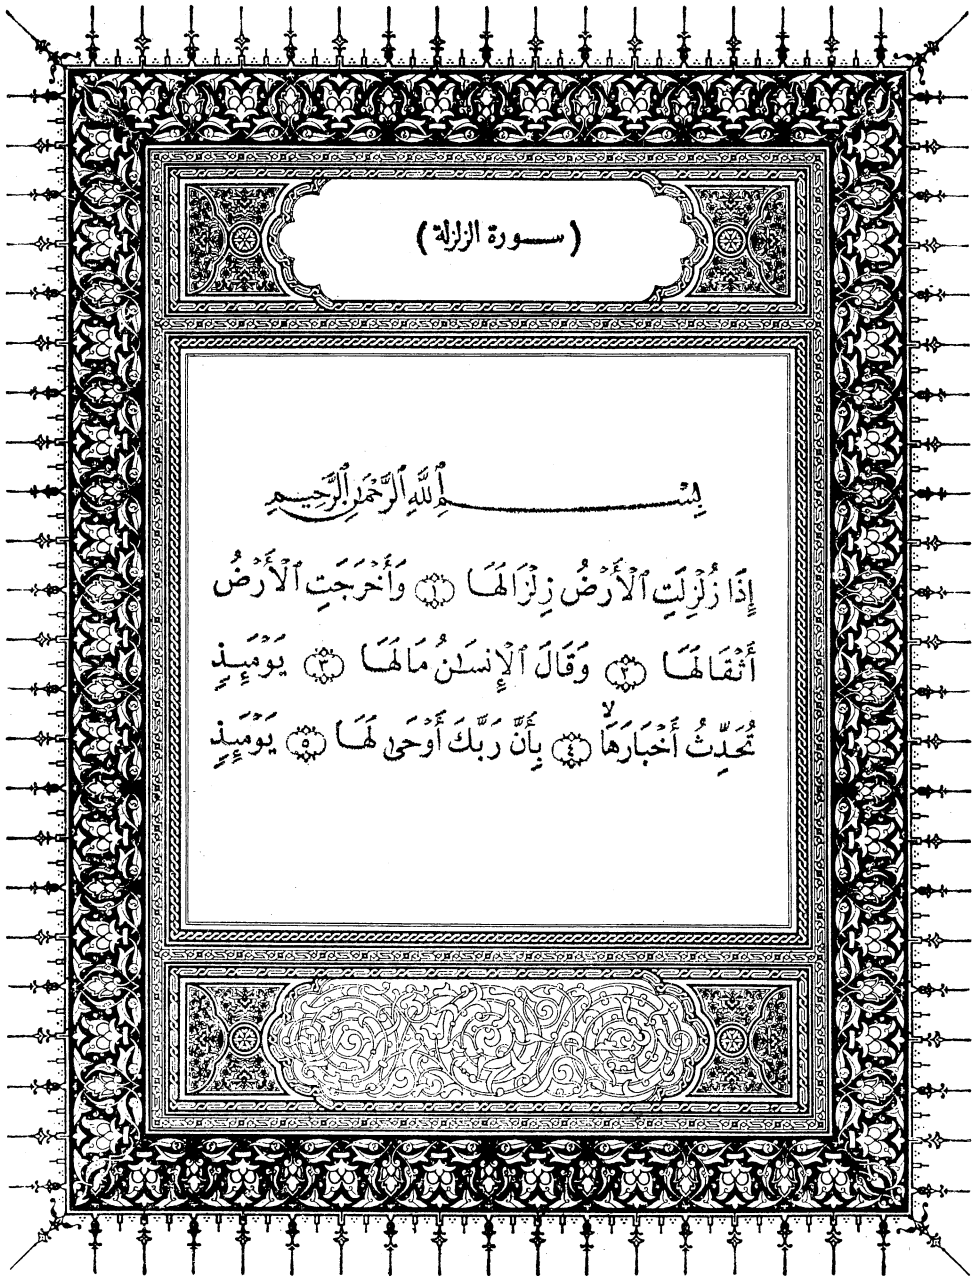 ( سورة الزلزلة )
بِسْمِ ٱللَّهِ ٱلرَّحْمَٰنِ ٱلرَّحِيمِ
إِذَا زُلْزِلَتِ ٱلْأَرْضُ زِلْزَالَهَا ۝١ وَأَخْرَجَتِ ٱلْأَرْضُ
أَثْقَالَهَا ۝٢ وَقَالَ ٱلْإِنسَٰنُ مَا لَهَا ۝٣ يَوْمَئِذٍ
تُحَدِّثُ أَخْبَارَهَا ۙ ۝٤ بِأَنَّ رَبَّكَ أَوْحَىٰ لَهَا ۝٥ يَوْمَئِذٍ